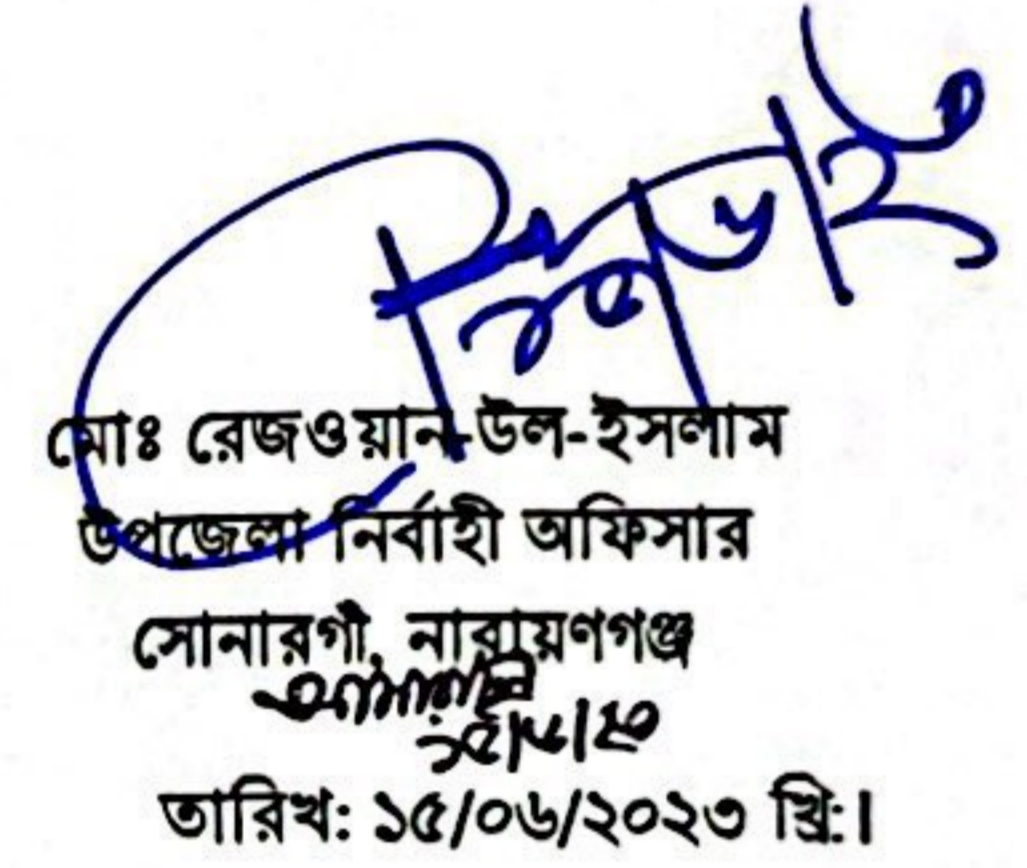 ১৫/৬/২৩
মোঃ রেজওয়ান-উল-ইসলাম
উপজেলা নির্বাহী অফিসার
সোনারগাঁ, নারায়ণগঞ্জ
১৫/৬/২৩
তারিখ: ১৫/০৬/২০২৩ খ্রি:।